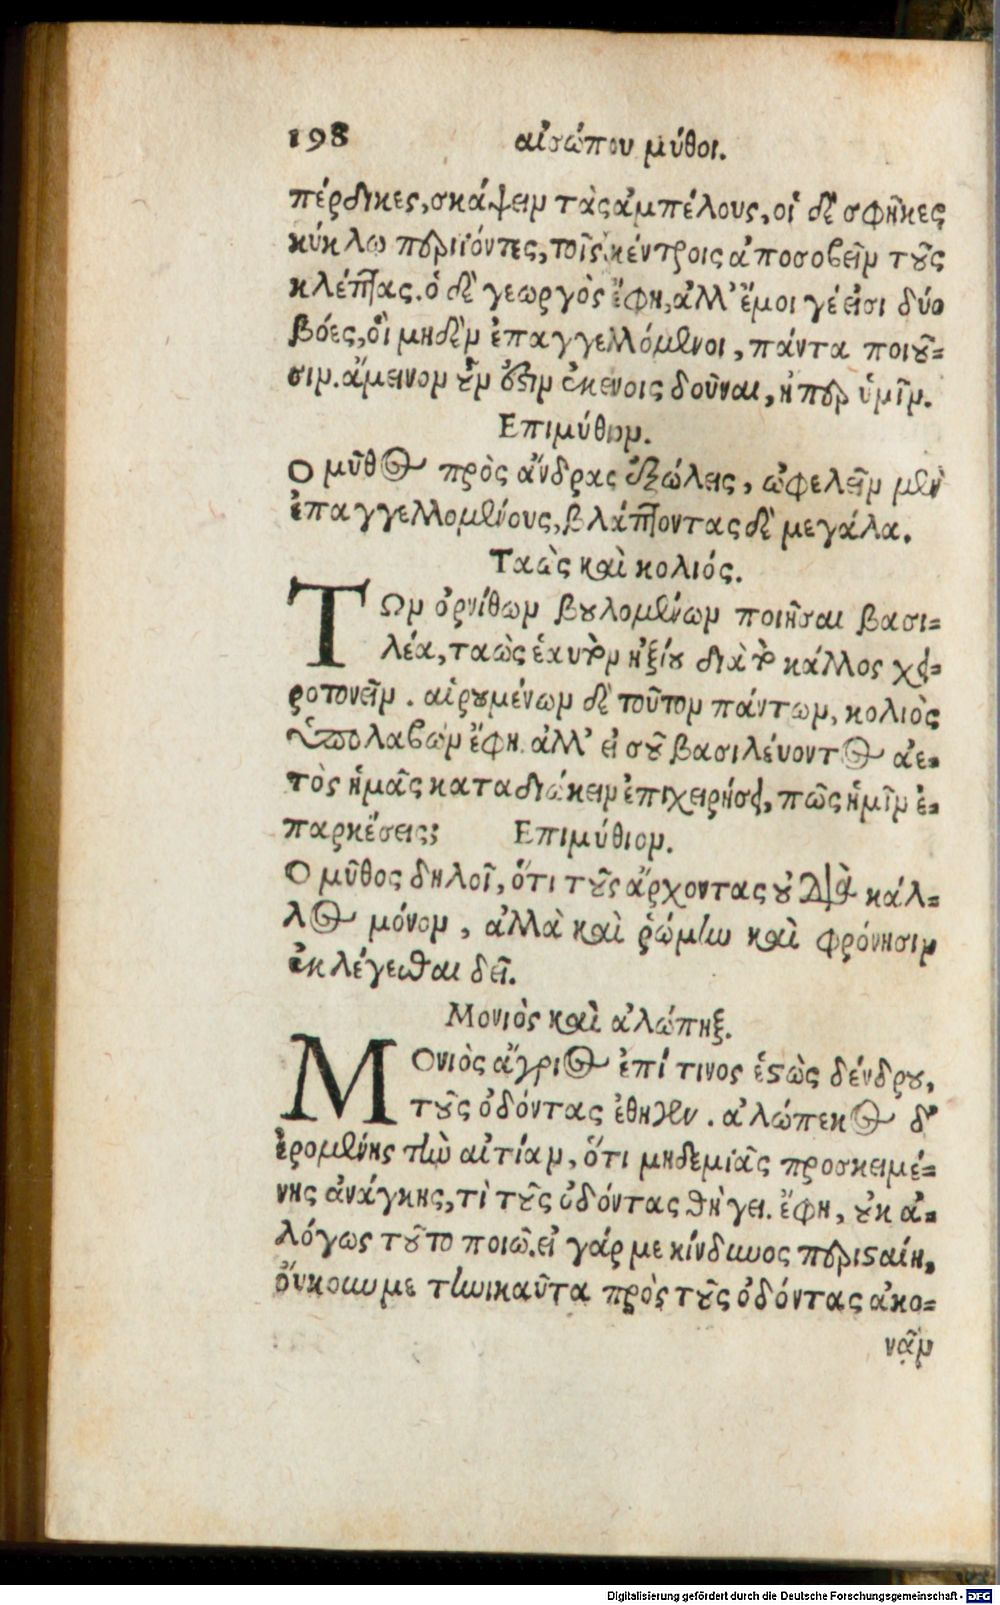 198 αἰσώπου μύθοι.
πέρδικες, σκάψειν τὰς ἀμπέλους, οἱ δὲ σφῆκες
κύκλω περιϊόντες, τοῖς κέντροις ἀποσοβεῖν τοὺς
κλέπτας. ὁ δὲ γεωργὸς ἔφη, ἀλλ' ἔμοι γέ εἰσι δύο
βόες, οἳ μηδὲν ἐπαγγελλόμενοι, πάντα ποιοῦ-
σιν. ἄμεινον οὖν ὅξιν ἐκείνοις δοῦναι, ἤπερ ὑμῖν.
Επιμύθιον.
Ο μῦθος πρὸς ἄνδρας ἐξώλεις, ὠφελεῖν μὲν
ἐπαγγελλομένους, βλάπτοντας δὲ μεγάλα.
Ταὼς καὶ κολιός.
ΤΩν ὀρνίθων βουλομένων ποιῆσαι βασι-
λέα, ταὼς ἑαυτὸν ἠξίου διὰ τὸ κάλλος χει-
ροτονεῖν. αἱρουμένων δὲ τοῦτον πάντων, κολιὸς
ὑπολαβὼν ἔφη. ἀλλ' εἰ σοῦ βασιλεύοντος ἀε-
τὸς ἡμᾶς καταδιώκειν ἐπιχειρήσει, πῶς ἡμῖν ἐ-
παρκέσεις; Επιμύθιον.
Ο μῦθος δηλοῖ, ὅτι τοὺς ἄρχοντας οὐ διὰ κάλ-
λος μόνον, ἀλλὰ καὶ ῥώμην καὶ φρόνησιν
ἐκλέγεσθαι δεῖ.
Μονιὸς καὶ ἀλώπηξ.
ΜΟνιὸς ἄγριος ἐπί τινος ἑστὼς δένδρου,
τοὺς ὀδόντας ἔθηγεν. ἀλώπεκος δ'
ἐρομένης τὴν αἰτίαν, ὅτι μηδεμιᾶς προσκειμέ-
νης ἀνάγκης, τὶ τοὺς ὀδόντας θήγει. ἔφη, οὐκ ἀ-
λόγως τοῦτο ποιῶ. εἰ γάρ με κίνδυνος περισταίη,
οὔκουν με τηνικαῦτα πρὸς τοὺς ὀδόντας ἀκο-
νᾷν
Digitalisierung gefördert durch die Deutsche Forschungsgemeinschaft - DFG